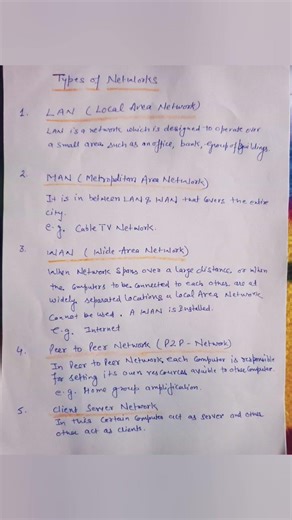 Types of Networks
1. LAN (Local Area Network)
LAN is a network which is designed to operate over
a small area such as an office, bank, group of buildings.
2. MAN (Metropolitan Area Network)
It is in between LAN & WAN that covers the entire
city.
e.g. Cable TV Network.
3. WAN (Wide Area Network)
When Network spans over a large distance or when
the computers to be connected to each other are at
widely separated locations a local Area Network
cannot be used. A WAN is Installed.
e.g. Internet
4. Peer to Peer Network (P2P - Network)
In Peer to Peer Network each Computer is responsible
for setting its own resources to other Computer
e.g. Home group
5. Client Server Network
In this Certain Computer act as Server and other
act as clients.